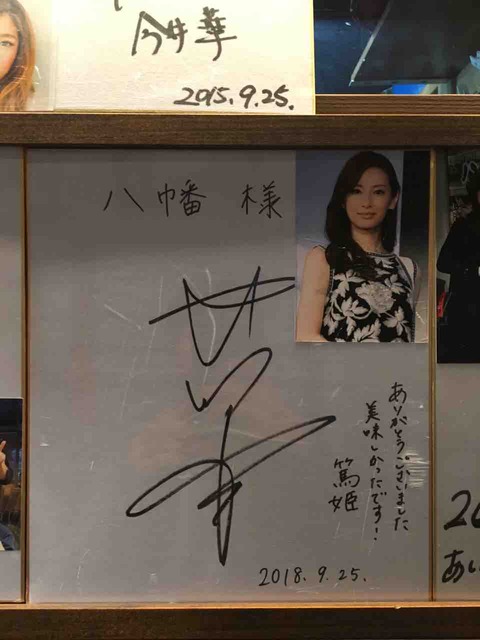 今井華
2015.9.25.
八幡 様
ありがとうございました
美味しかったです!
篤姫
2018.9.25.
20
あい